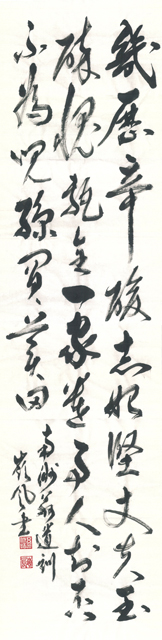 幾歴辛酸志始堅丈夫玉
砕愧甎全一家遺事人知否
不為児孫買美田
南洲翁遺訓
嶺風書